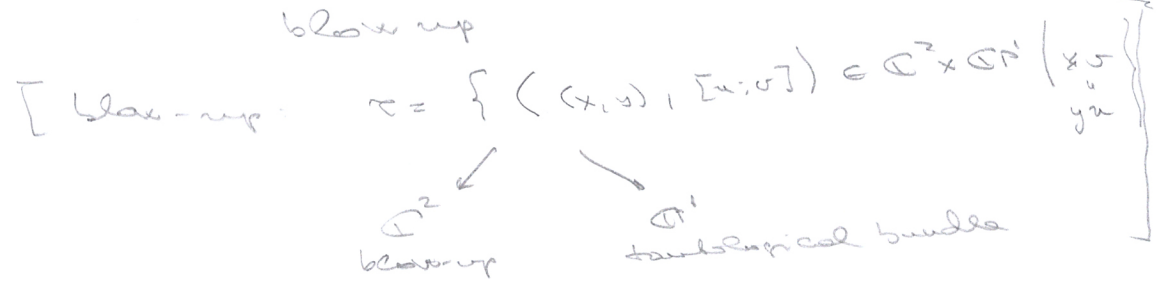 blow up
[ blow-up: τ = { ((x,y), [u:v]) ∈ ℂ² × ℂP¹ | xv = yu } ]
↙ ↘
ℂ² ℂP¹
blow-up tautological bundle